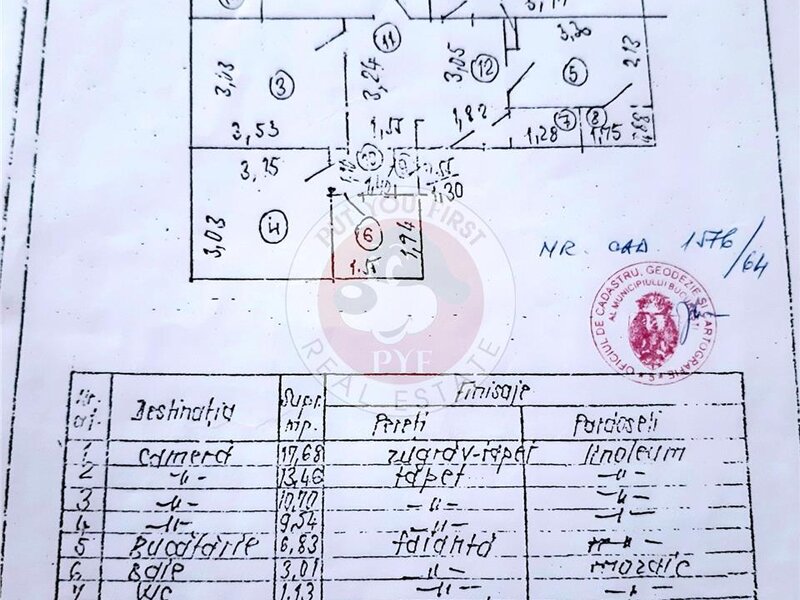 11
3,30
3,03
3
3,24
3,05
12
5
2,13
3,53
1,55
1,82
1,28
7
8
1,75
3,25
10
9
1,30
3,03
4
6
1,94
1.55
NR. CAD. 1576/64
OFICIUL DE CADASTRU, GEODEZIE ȘI CARTOGRAFIE
AL MUNICIPIULUI BUCUREȘTI
PUT YOU FIRST
PYF
REAL ESTATE
Nr. Destinația Supr. Finisaje
mp. Pereți Pardoseli
1 cameră 17,68 zugrav-tapet linoleum
2 -"- 13,46 tapet -"-
3 -"- 10,70 -"- -"-
4 -"- 9,54 -"- -"-
5 Bucătărie 6,83 faianță -"-
6 Baie 3,01 -"- mozaic
7 WC 1,13 -"- -"-